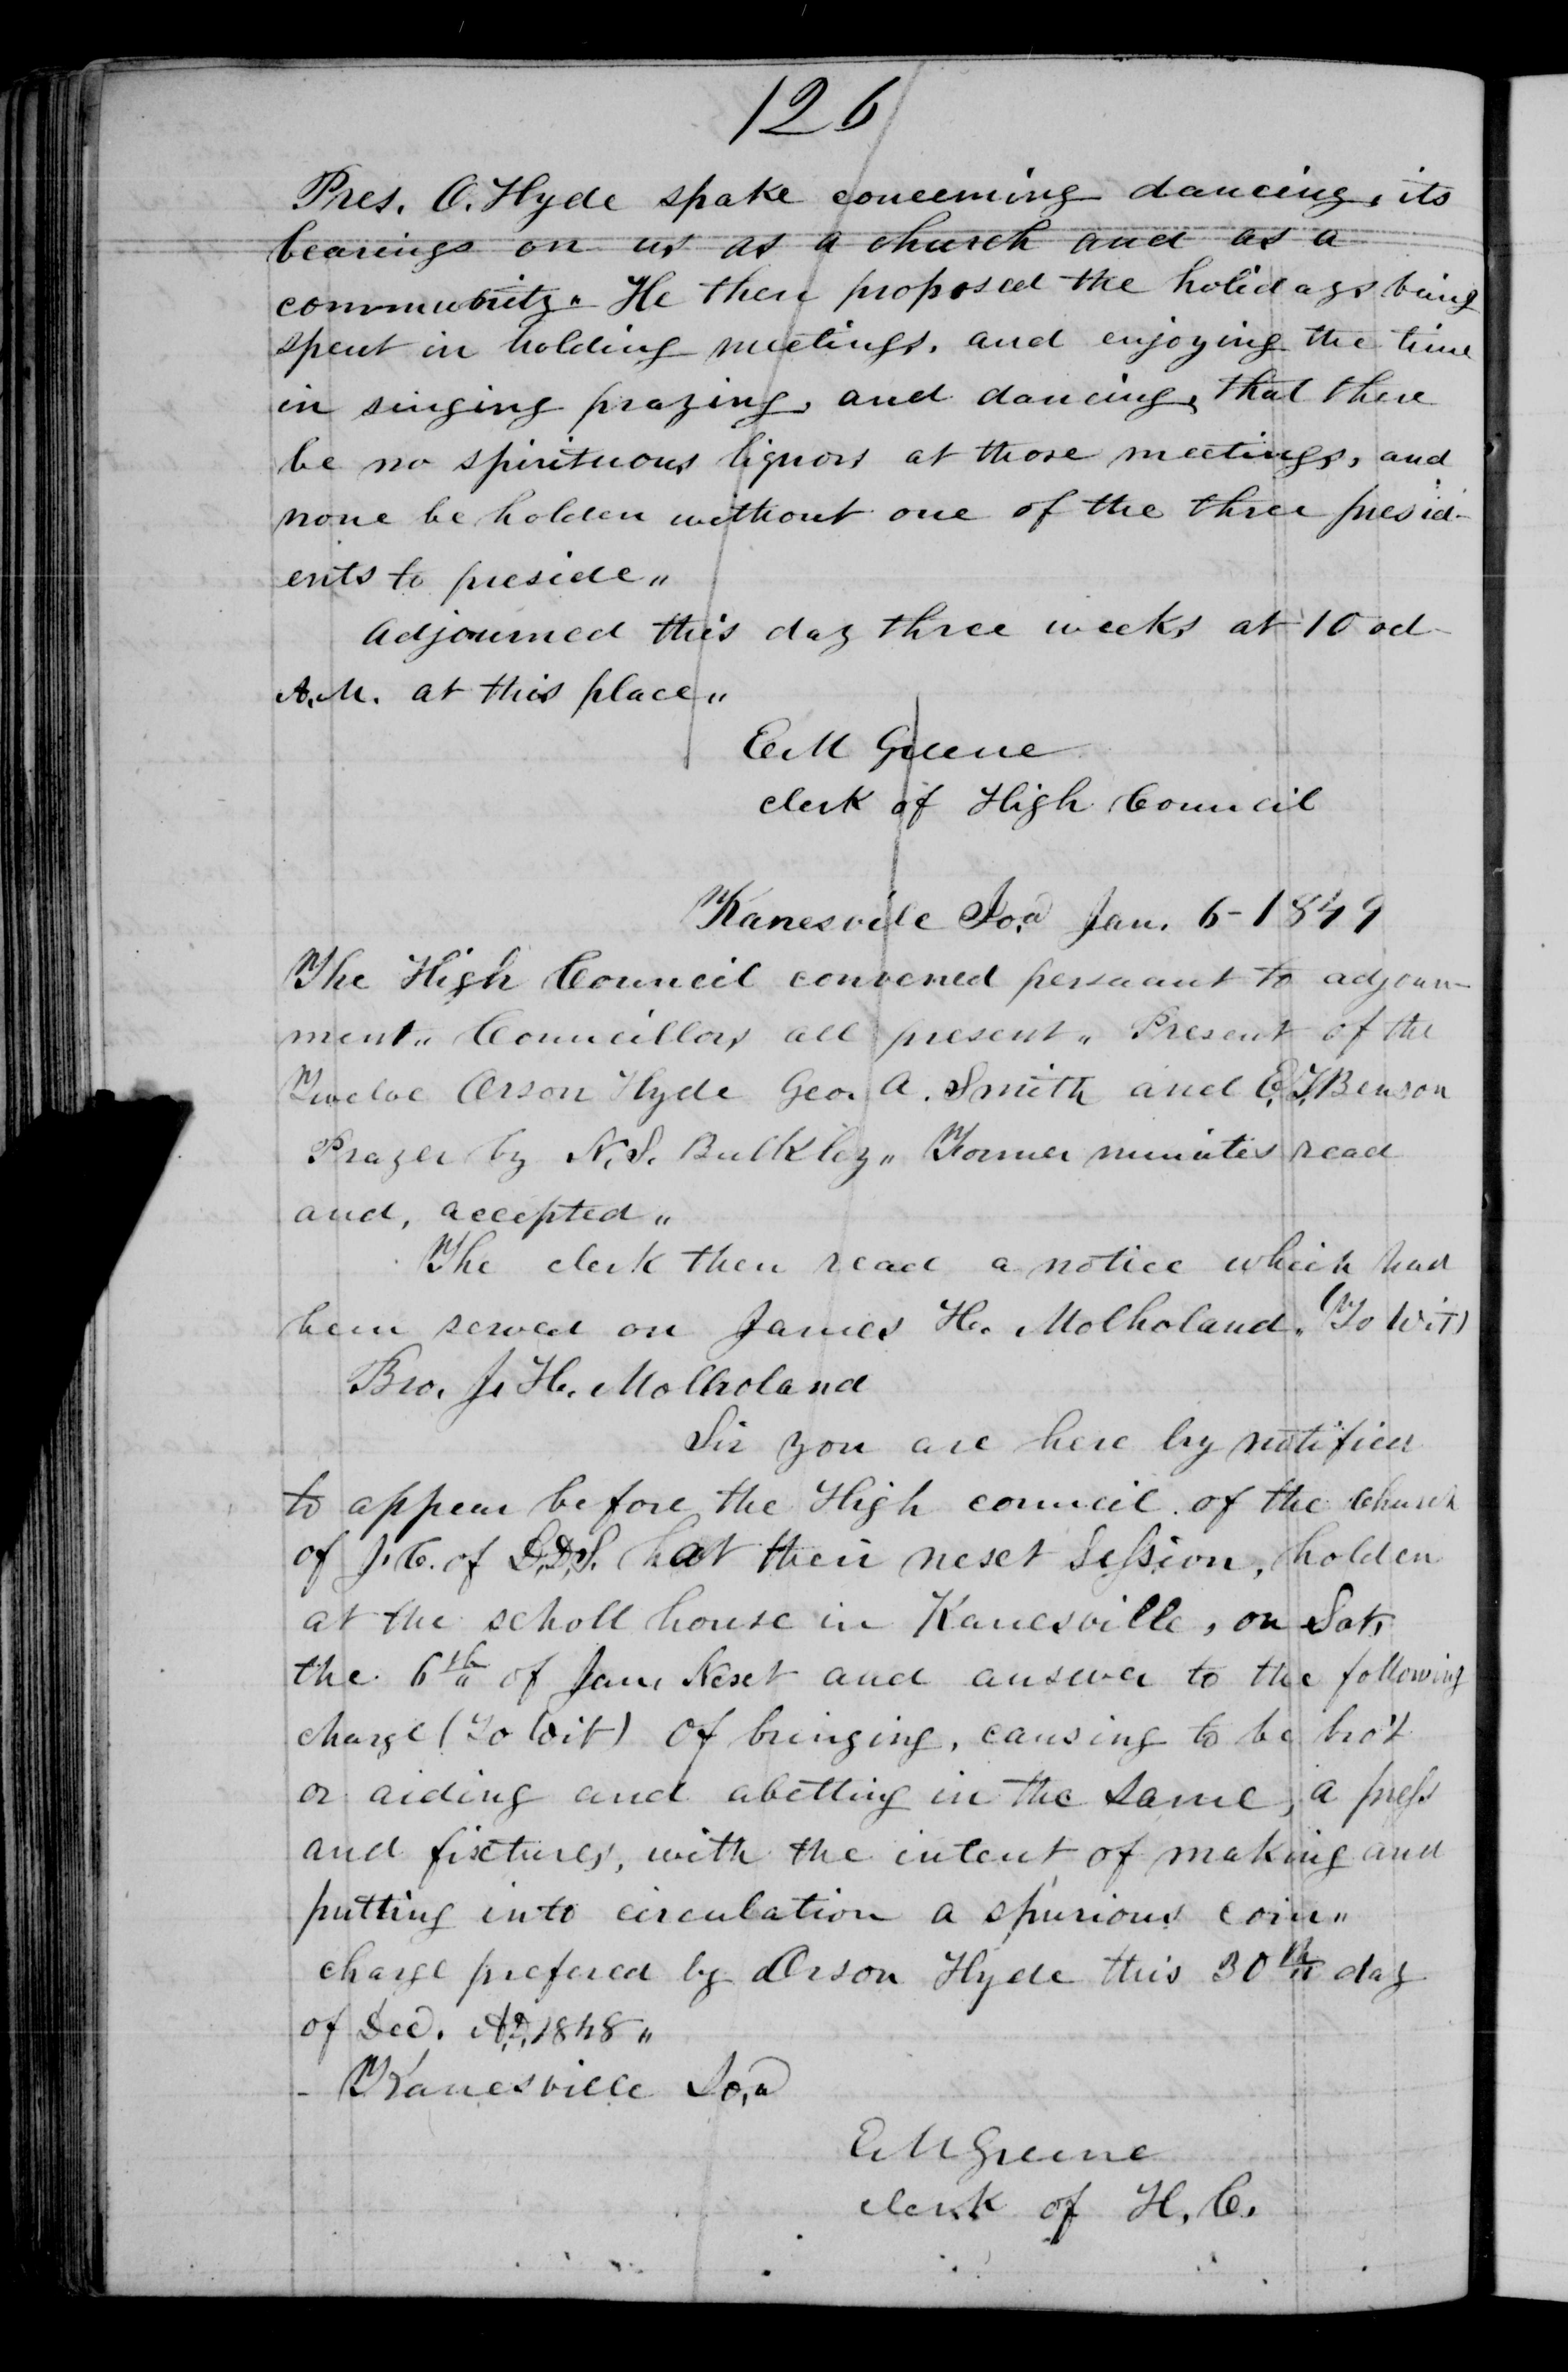 126
Pres. O. Hyde spake concerning dancing, its
bearings on us as a church and as a
community„ He then proposed the holidays being
spent in holding meetings, and enjoying the time
in singing praying, and dancing, that there
be no spirituous liquors at those meetings, and
none be holden without one of the three presid-
ents to preside„
Adjourned this day three weeks at 10 ocl-
A.M. at this place„
E M Greene
clerk of High Council
Kanesvile Io,a Jan. 6-1849
The High Council convened persuant to adjourn-
ment„ Councillors all present„ Present of the
Twelve Orson Hyde Geo. A. Smith and E,T,Benson
Prayer by N.S. Bulkley„ Former minutes read
and, accepted„
The clerk then read a notice which had
been served on James H. Molholand. (To Wit)
Bro. J. H. Molholand
Sir you are here by notified
to appear before the High council of the Church
of J.C. of L,D,S. hat their nesct Session, holden
at the scholl house in Kanesville, on Sat,
the 6th„ of Jan, Nesct and answer to the following
charge (To Wit) Of bringing, causing to be bro't
or aiding and abetting in the same, a press
and fixtures, with the intent of making and
putting into circulation a spurious coin„
charge prefered by Orson Hyde this 30th„ day
of Dec. A,D, 1848„
- Kanesville Io,a
E M Greene
clerk of H, C.